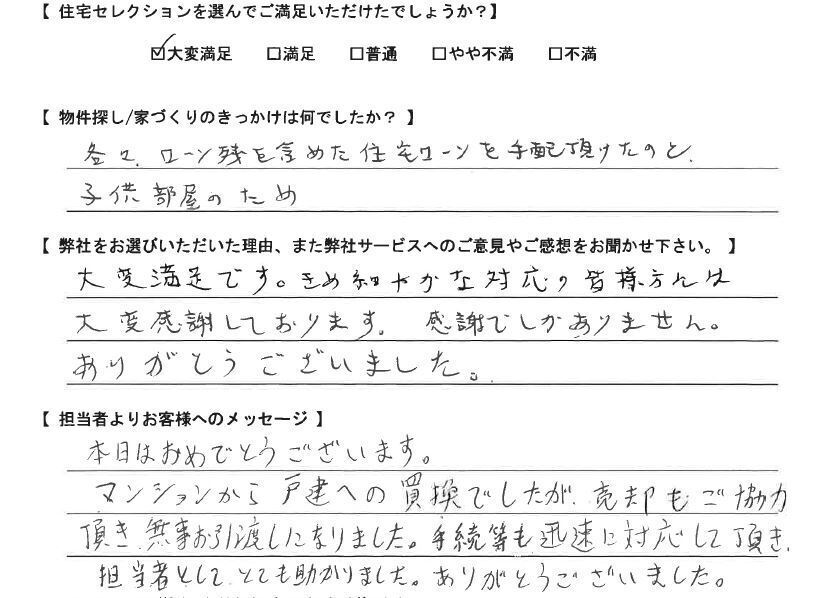 【 住宅セレクションを選んでご満足いただけたでしょうか？】
☑大変満足 □満足 □普通 □やや不満 □不満
【 物件探し/家づくりのきっかけは何でしたか？ 】
各々、ローン残を含めた住宅ローンを手配頂けたのと、
子供部屋のため
【 弊社をお選びいただいた理由、また弊社サービスへのご意見やご感想をお聞かせ下さい。 】
大変満足です。きめ細やかな対応の皆様方には
大変感謝しております。 感謝でしかありません。
ありがとうございました。
【 担当者よりお客様へのメッセージ 】
本日はおめでとうございます。
マンションから戸建への買換でしたが、売却もご協力
頂き、無事お引渡しになりました。手続等も迅速に対応して頂き、
担当者として、とても助かりました。ありがとうございました。